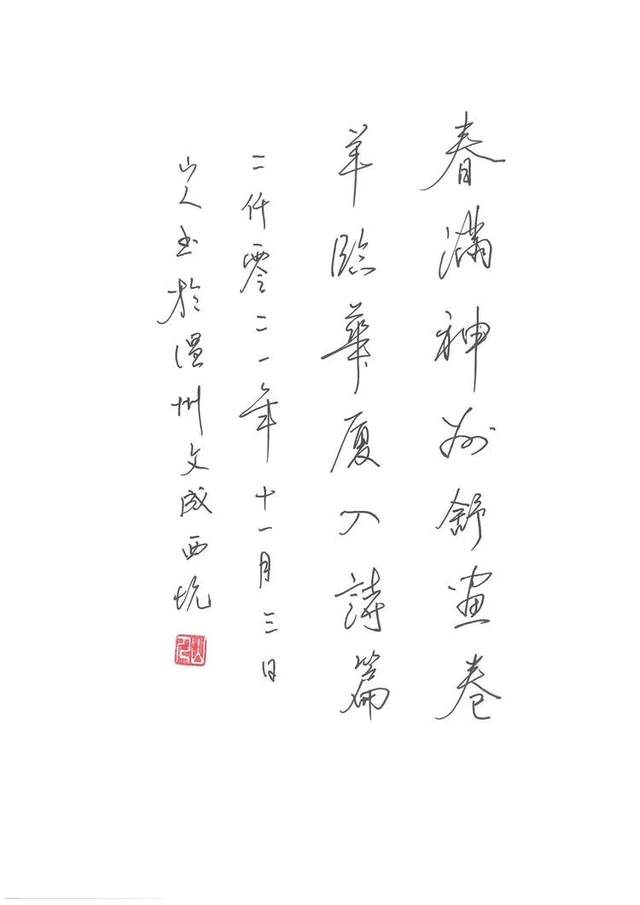 春满神州舒画卷
羊临华厦入詩篇
二仟零二一年十一月三日
山人书於温州文成西坑
山人